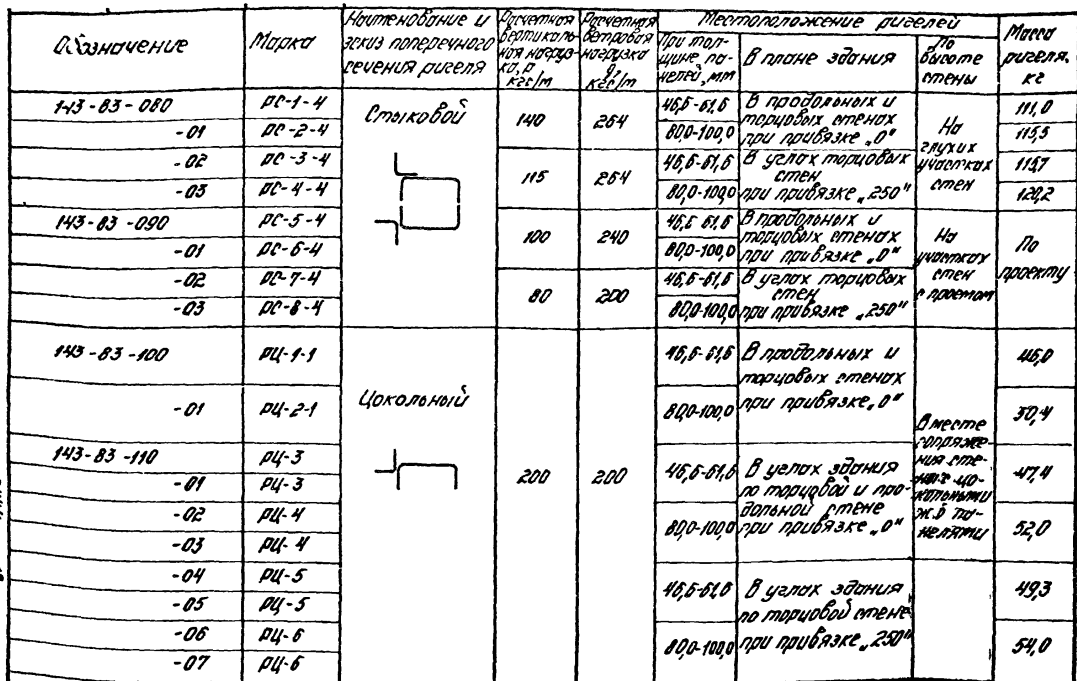 Обозначение
Марка
Наименование и эскиз поперечного сечения ригеля
Расчетная вертикальная нагрузка, р кгс/м
Расчетная ветровая нагрузка q кгс/м
Местоположение ригелей
При толщине панелей, мм
В плане здания
По высоте стены
Масса ригеля, кг
143-83-080 РС-1-4 Стыковой 140 264 46,6-61,6 В продольных и торцовых стенах при привязке „0" На глухих участках стен 111,0
-01 РС-2-4 80,0-100,0 115,5
-02 РС-3-4 115 264 46,6-61,6 В углах торцовых стен при привязке „250" 115,7
-03 РС-4-4 80,0-100,0 120,2
143-83-090 РС-5-4 100 240 46,6-61,6 В продольных и торцовых стенах при привязке „0" На участках стен с проемом По проекту
-01 РС-6-4 80,0-100,0
-02 РС-7-4 80 200 46,6-61,6 В углах торцовых стен при привязке „250"
-03 РС-8-4 80,0-100,0
143-83-100 РЦ-1-1 Цокольный 200 200 46,6-61,6 В продольных и торцовых стенах при привязке „0" В месте сопряжения стены с цокольными ж.б панелями 46,0
-01 РЦ-2-1 80,0-100,0 50,4
143-83-110 РЦ-3 46,6-61,6 В углах здания по торцовой и продольной стене при привязке „0" 47,4
-01 РЦ-3
-02 РЦ-4 80,0-100,0 52,0
-03 РЦ-4
-04 РЦ-5 46,6-61,6 В углах здания по торцовой стене при привязке „250" 49,3
-05 РЦ-5
-06 РЦ-6 80,0-100,0 54,0
-07 РЦ-6